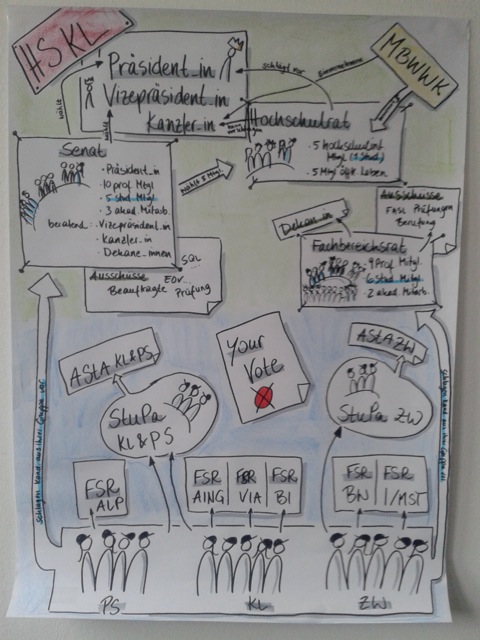 HSKL
MBWWK
Präsident_in
Vizepräsident_in
Kanzler_in
schlägt vor
wählt
Hochschulrat
5 Hochschulint.
Mtgl (1 Stud.)
5 Mtgl öffl. Leben
Senat
Präsident_in
10 prof. Mtgl
5 stud. Mtgl
3 akad. Mitarb.
beratend: Vizepräsident_in
Kanzler_in
Dekane_innen
wählt 5 Mtgl
Ausschüsse
Beauftragte
EDV...
Prüfung
SQL
Dekan_in
Ausschüsse
FNSL Prüfungen
Berufung
Fachbereichsrat
9 Prof Mitgl.
6 Stud. Mitgl.
2 akad. Mitarb.
AStA KL&PS
Your
Vote
AStA ZW
StuPa
KL&PS
StuPa ZW
schlagen Kand. aus ihrer Gruppe vor
schlagen Kand. aus ihrer Gruppe vor
FSR
ALP
FSR
AING
FSR
VIA
FSR
BI
FSR
BW
FSR
I/MST
PS
KL
ZW